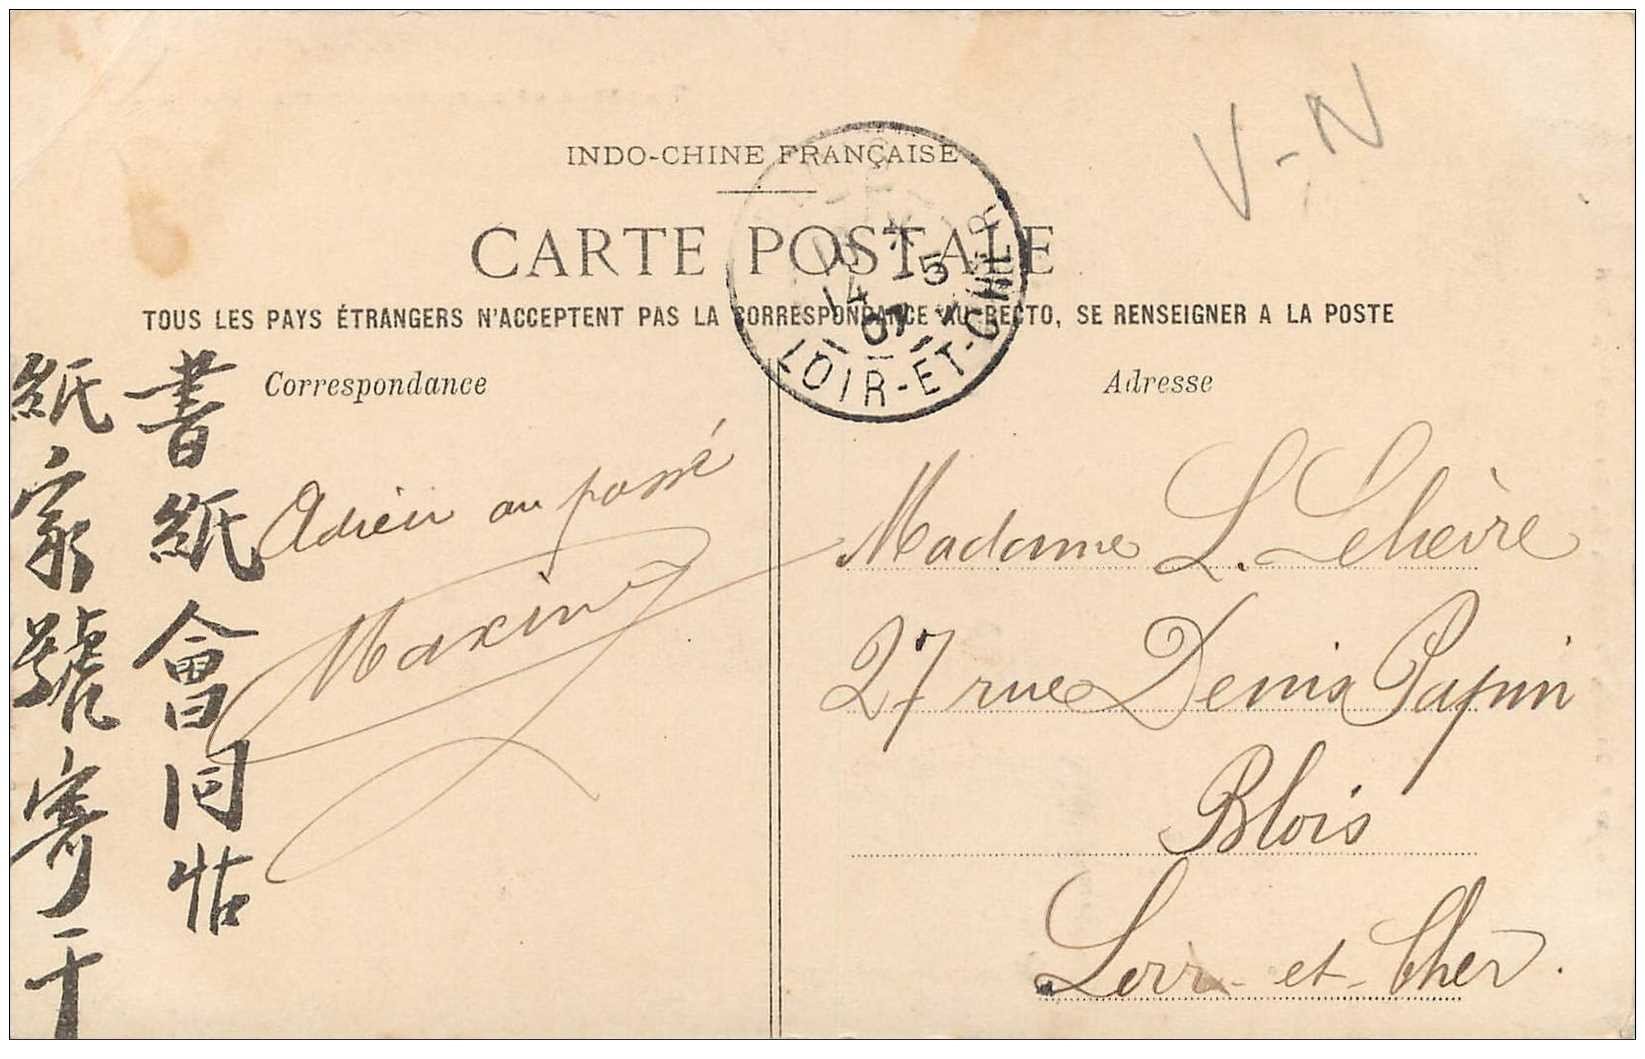 V-N
INDO-CHINE FRANÇAISE
CARTE POSTALE
TOUS LES PAYS ÉTRANGERS N'ACCEPTENT PAS LA CORRESPONDANCE AU RECTO, SE RENSEIGNER A LA POSTE
Correspondance
Adresse
LOIR-ET-CHER
15
14 5
07
書紙會同帖
紙家號寄于
Adieu au passé
Madame L. Lelièvre
27 rue Denis Papin
Blois
Loir-et-Cher.